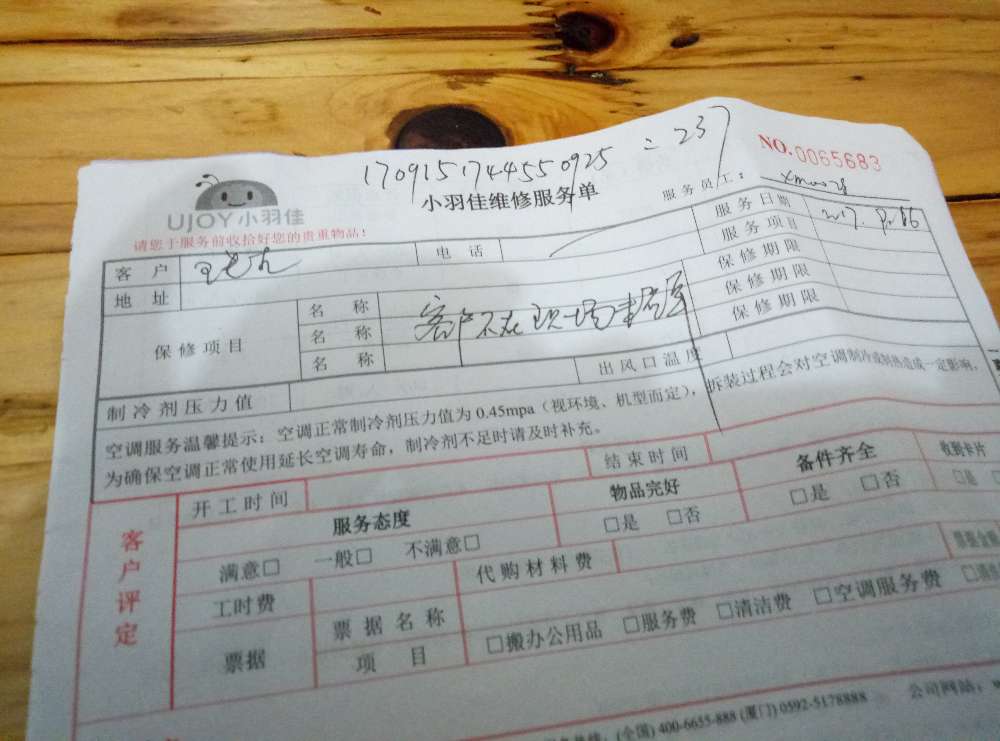 1709151744550925 = 237
NO.0065683
UJOY小羽佳
小羽佳维修服务单
服务员工:
请您于服务前收拾好您的贵重物品!
客户
电话
服务日期
地址
服务项目
保修项目
名称
保修期限
名称 客户不在现场
保修期限
名称
保修期限
制冷剂压力值
出风口温度
空调服务温馨提示:空调正常制冷剂压力值为0.45mpa(视环境、机型而定),拆装过程会对空调制冷或制热造成一定影响,
为确保空调正常使用延长空调寿命,制冷剂不足时请及时补充。
客户评定
开工时间
结束时间
服务态度
物品完好
备件齐全
收购卡片
满意□ 一般□ 不满意□
□是 □否
□是 □否
□是
工时费
代购材料费
票据
票据名称
□搬办公用品 □服务费 □清洁费 □空调服务费
项目
(全国) 400-6655-888 (厦门) 0592-5178888
公司网站: